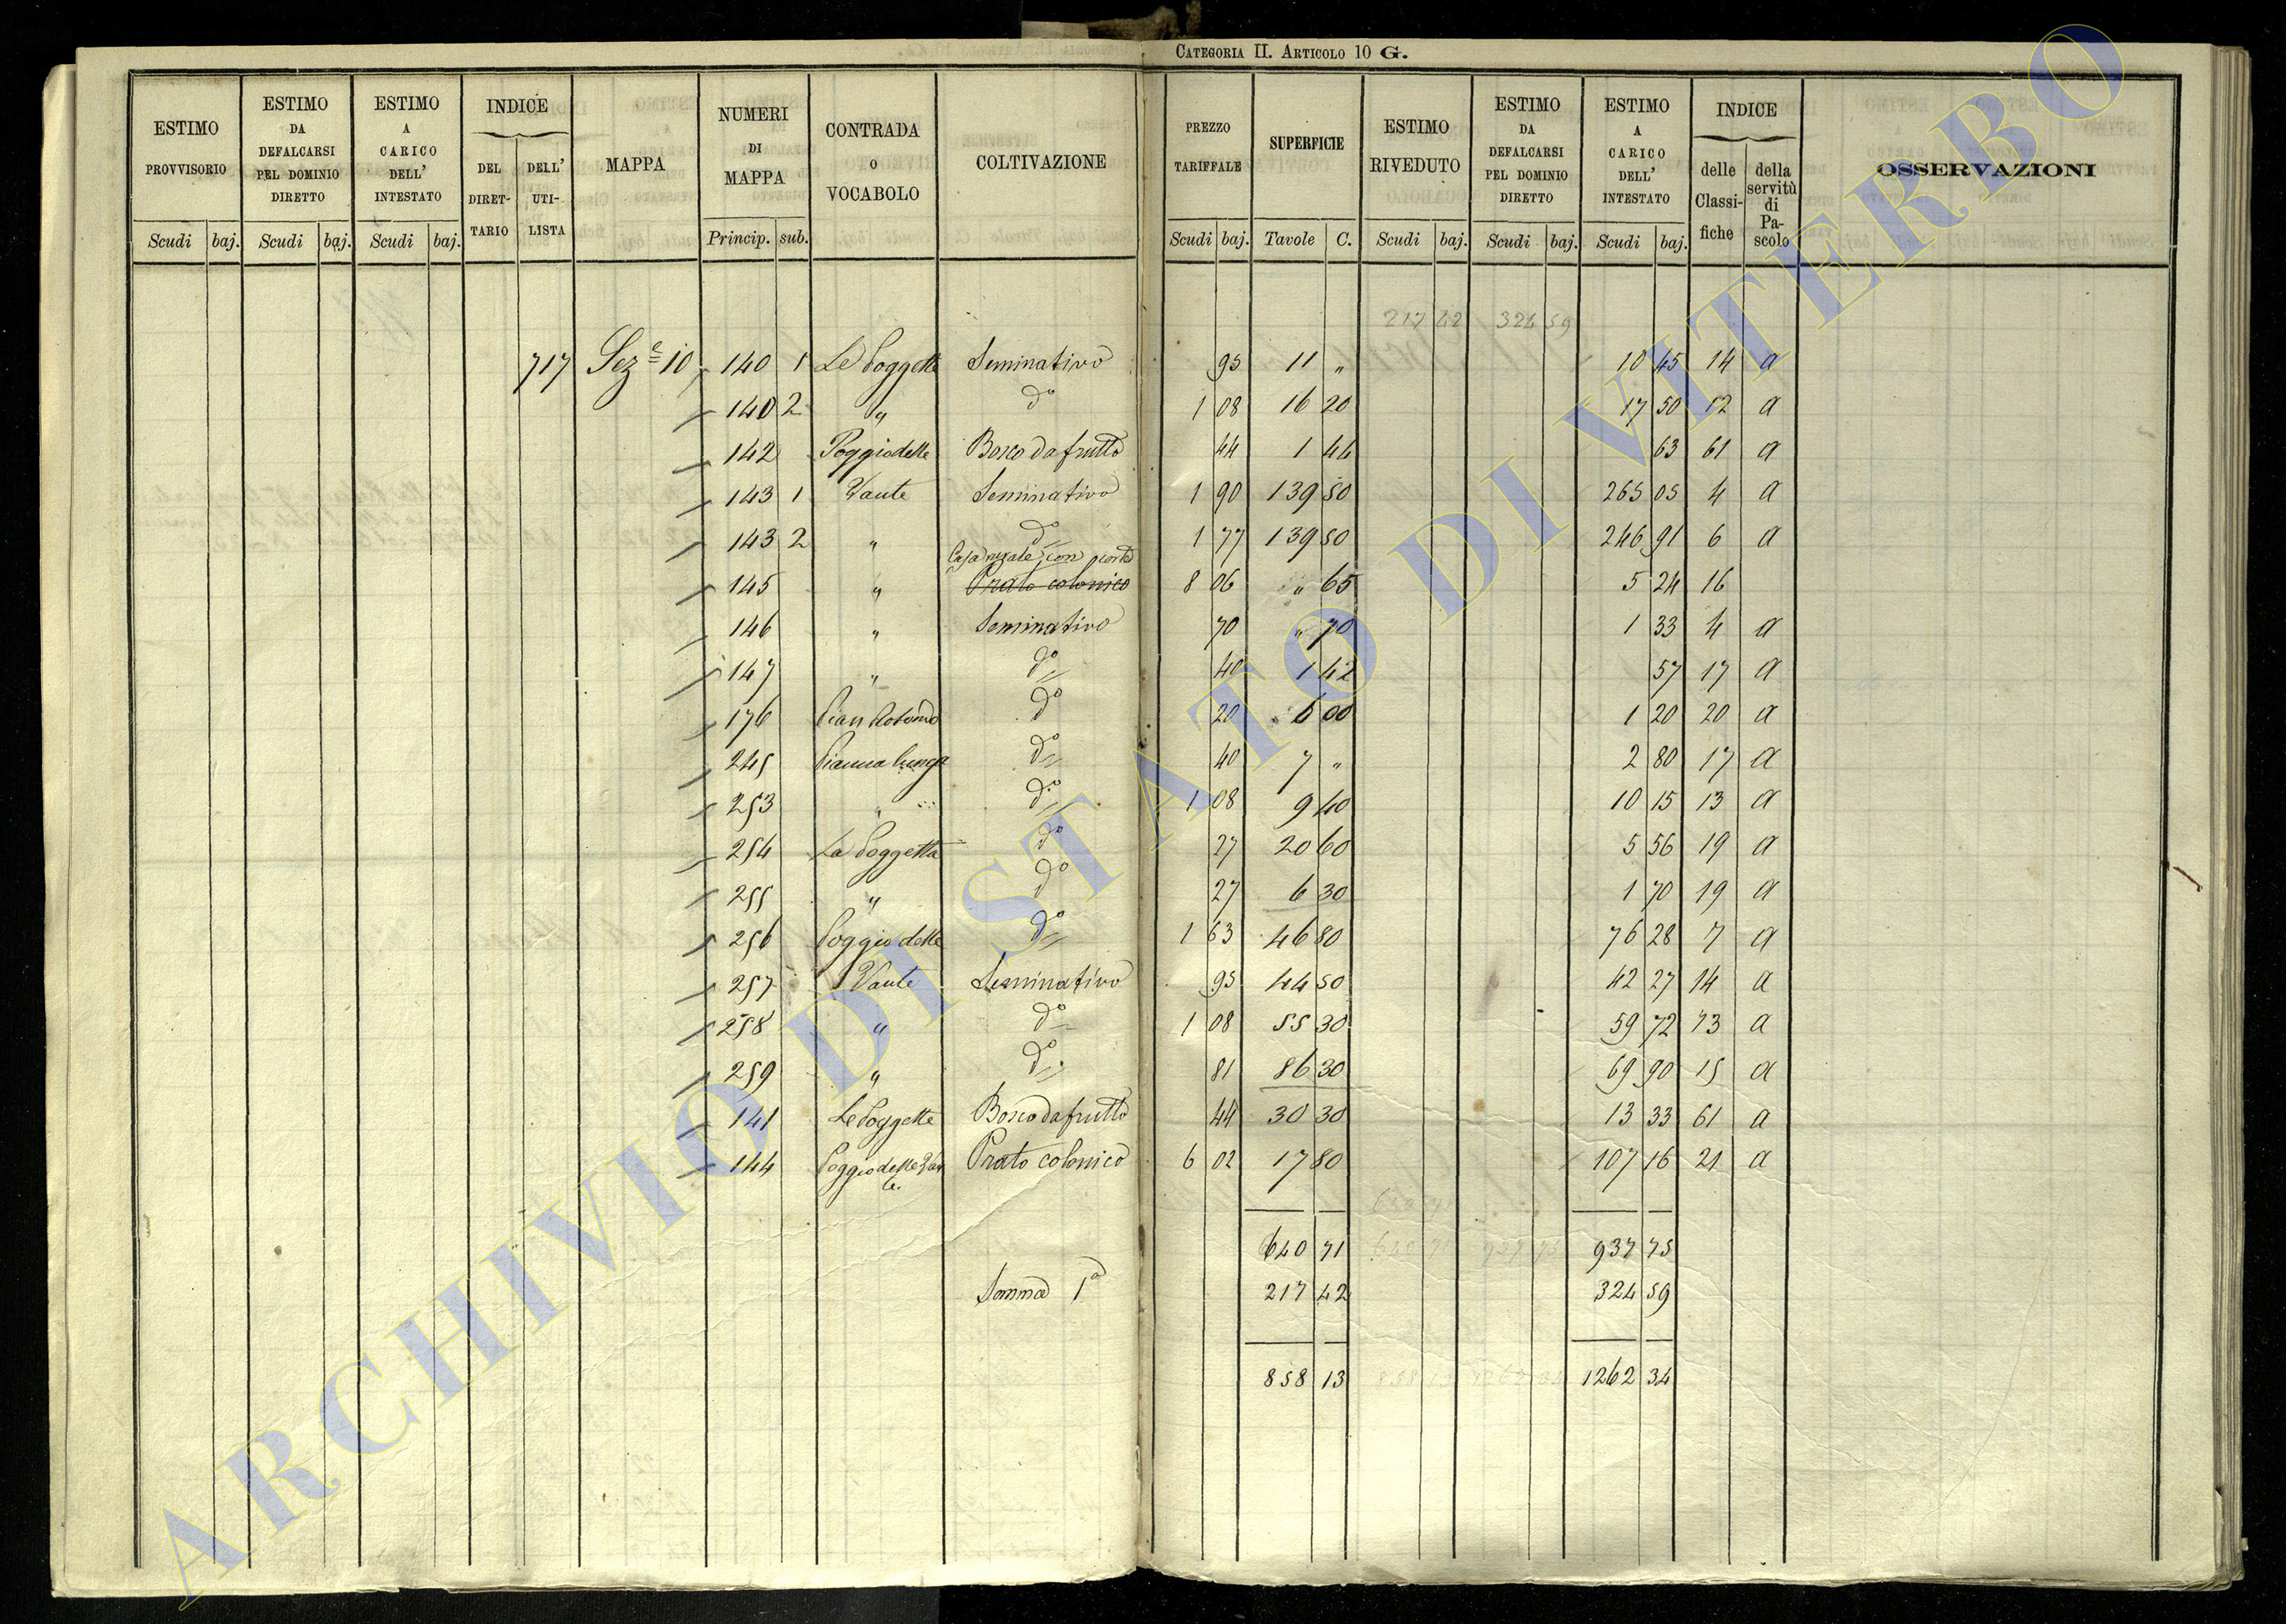 CATEGORIA II. ARTICOLO 10 G.
ESTIMO PROVVISORIO | ESTIMO DA DEFALCARSI PEL DOMINIO DIRETTO | ESTIMO A CARICO DELL' INTESTATO | INDICE DEL DIRET- TARIO | DELL' UTI- LISTA | MAPPA | NUMERI DI MAPPA | CONTRADA O VOCABOLO | COLTIVAZIONE | PREZZO TARIFFALE | SUPERFICIE | ESTIMO RIVEDUTO | ESTIMO DA DEFALCARSI PEL DOMINIO DIRETTO | ESTIMO A CARICO DELL' INTESTATO | INDICE delle Classi- fiche | della servitù di Pa- scolo | OSSERVAZIONI
Scudi baj. Scudi baj. Scudi baj. Princip. sub. Scudi baj. Tavole C. Scudi baj. Scudi baj. Scudi baj.
217 42 324 59
717 Sez.e 10 140 1 Le Poggette Seminativo 95 11 " 10 45 14 a
140 2 " do 1 08 16 20 17 50 12 a
142 Poggio delle Bosco da frutto 44 1 44 63 61 a
143 1 Vante Seminativo 1 90 139 50 265 05 4 a
143 2 " do 1 77 139 50 246 91 6 a
Casa rurale con corte
145 " Prato colonico 8 06 " 65 5 24 16
146 " Seminativo 70 " 70 1 33 4 a
147 " do 40 1 42 57 17 a
176 Pian Rotondo do 20 6 00 1 20 20 a
245 Pianna lunga do 40 7 " 2 80 17 a
253 " do 1 08 9 40 10 15 13 a
254 La Poggetta do 27 20 60 5 56 19 a
255 " do 27 6 30 1 70 19 a
256 Poggio delle do 1 63 46 80 76 28 7 a
257 Vante Seminativo 95 44 50 42 27 14 a
258 " do 1 08 55 30 59 72 13 a
259 " do 81 86 30 69 90 15 a
141 Le Poggette Bosco da frutto 44 30 30 13 33 61 a
144 Poggio delle Van Prato colonico 6 02 17 80 107 16 21 a
te.
640 71 937 75
Somma 1a 217 42 324 59
858 13 1262 34
ARCHIVIO DI STATO DI VITERBO